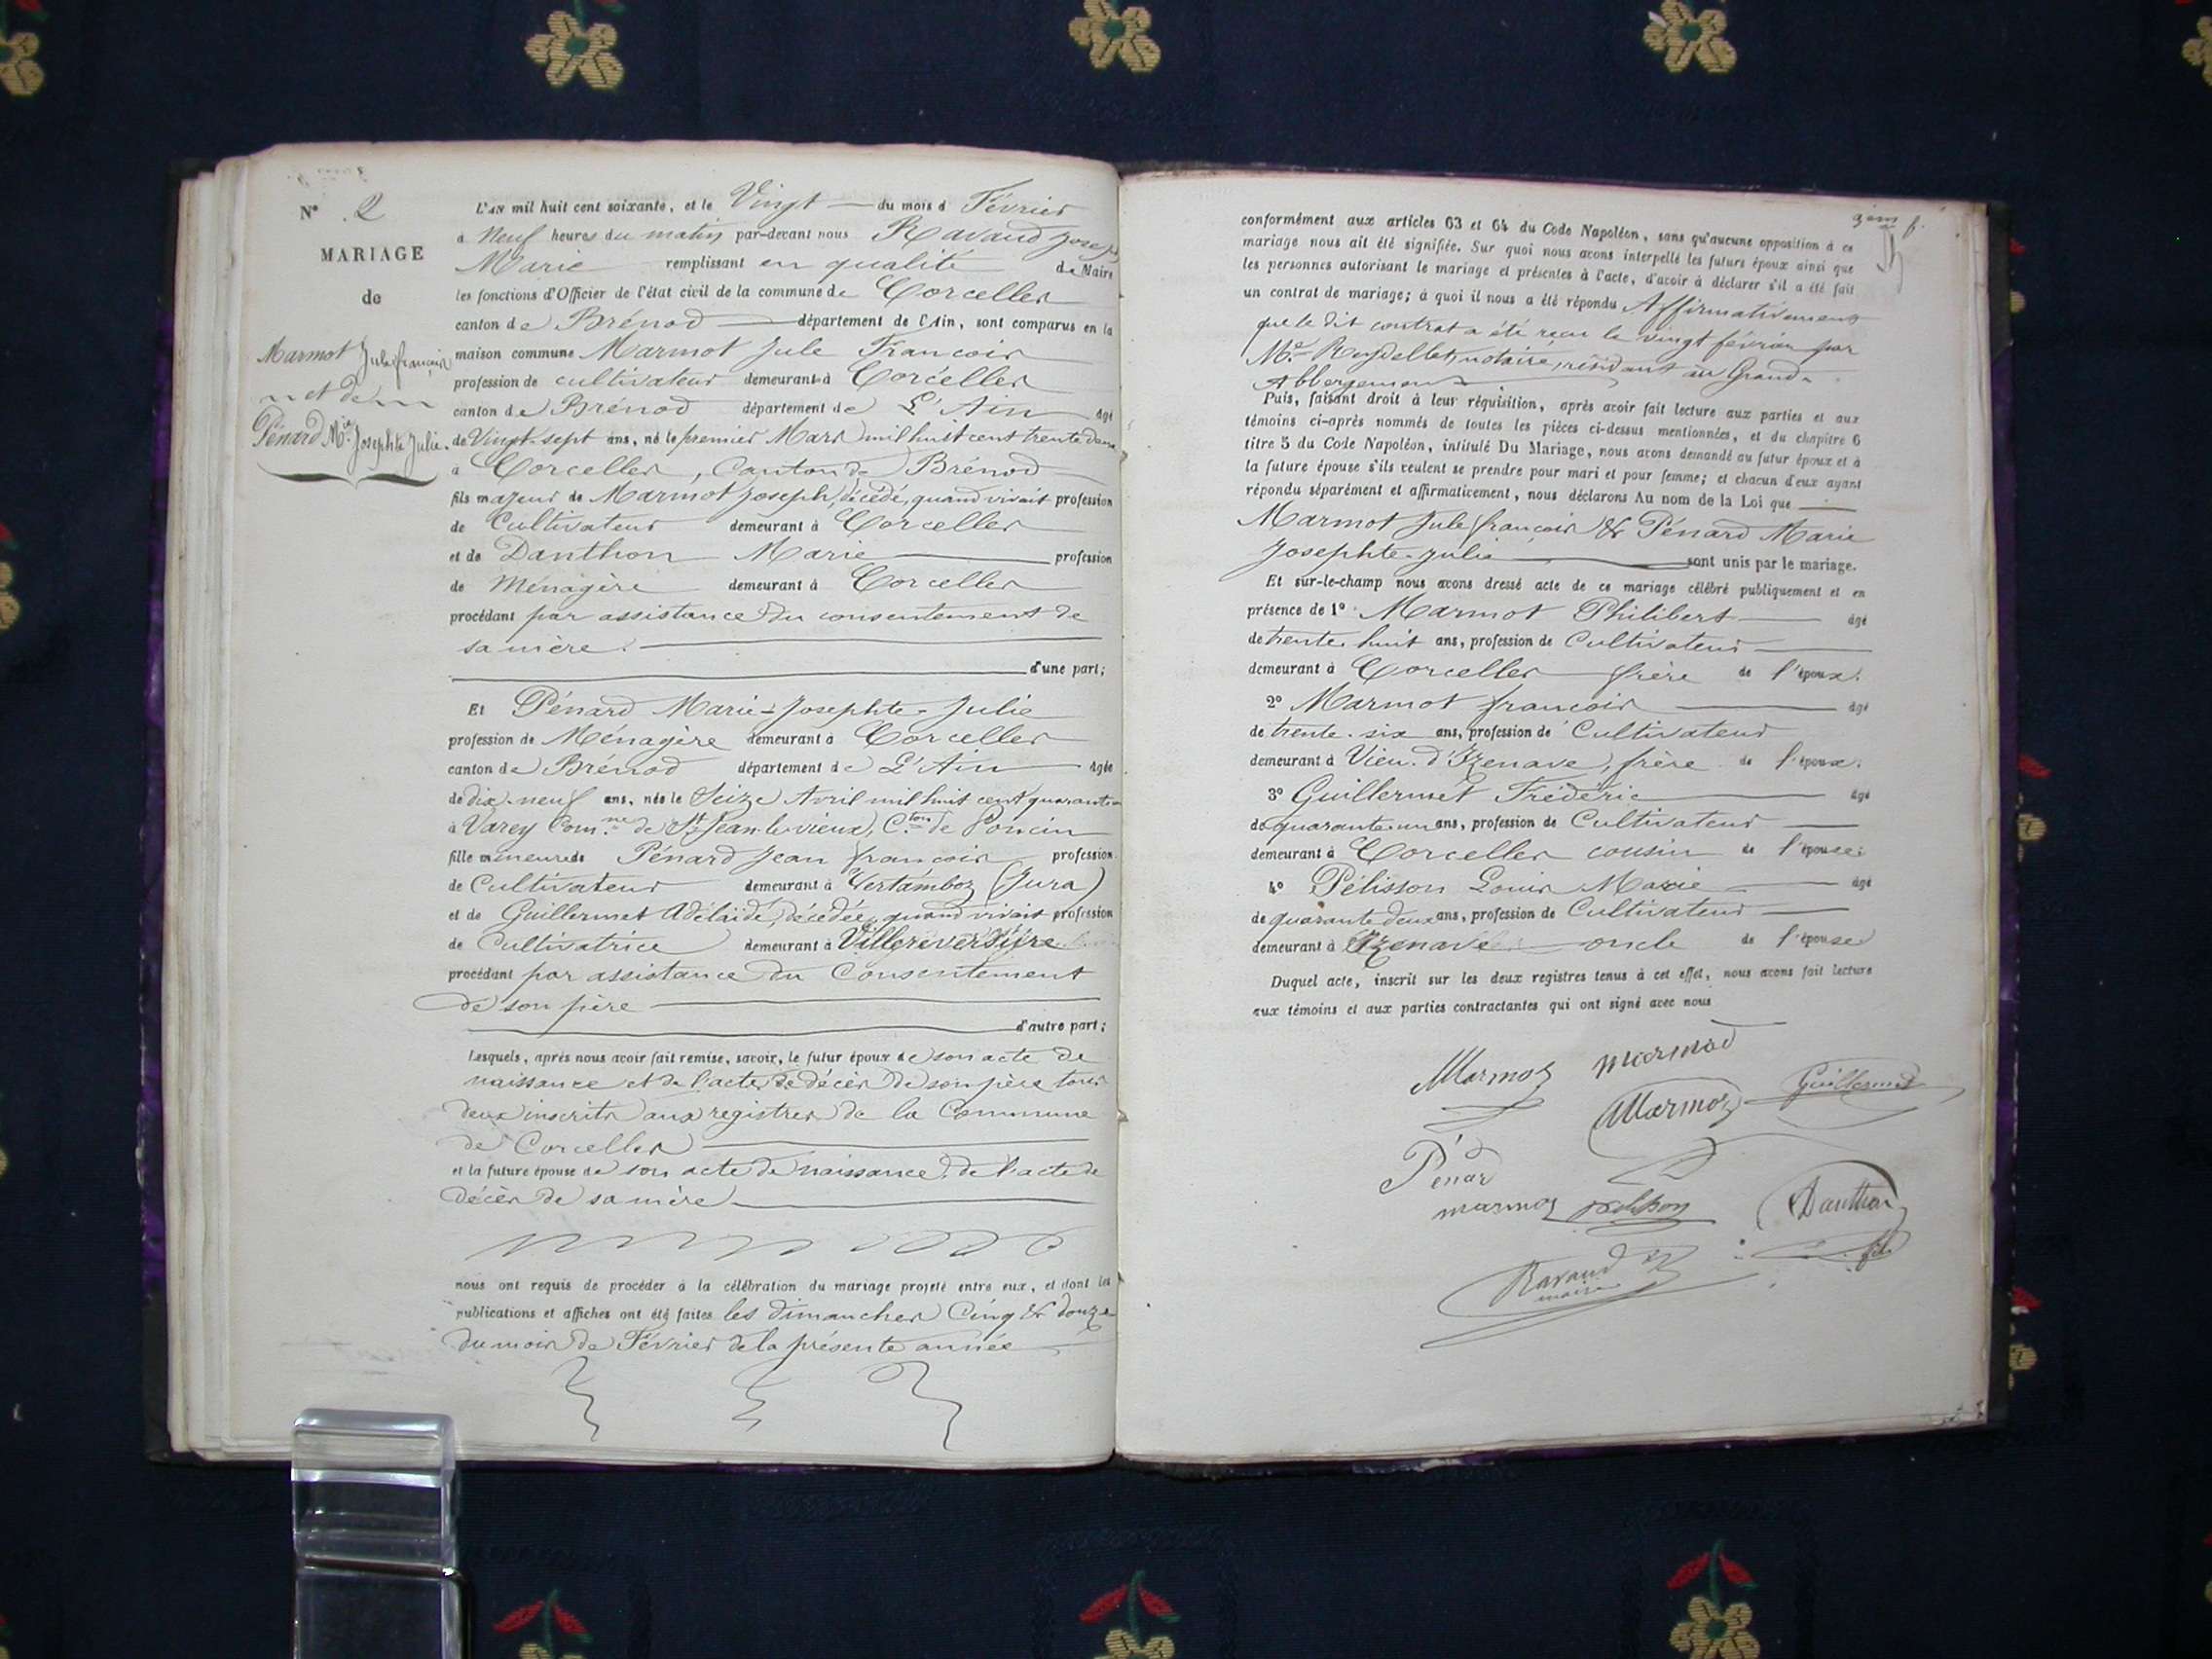 N° 2
MARIAGE
de
Marmot Jule françois
et de
Pénard Mie Josephte Julie.
L'AN mil huit cent soixante, et le Vingt du mois d Février
à Neuf heures du matin par-devant nous Ravaud Joseph
Marie remplissant en qualité de Maire
les fonctions d'Officier de l'état civil de la commune de Corcelles
canton de Brénod département de l'Ain, sont comparus en la
maison commune Marmot Jule Francois
profession de cultivateur demeurant à Corcelles
canton de Brénod département de L'Ain âgé
de Vingt-sept ans, né le premier Mars mil huit cent trente deux
à Corcelles, Canton de Brénod
fils majeur de Marmot Joseph, décédé, quand vivait profession
de Cultivateur demeurant à Corcelles
et de Danthon Marie profession
de Ménagère demeurant à Corcelles
procédant par assistance du consentement de
sa mère.
d'une part;
Et Pénard Marie-Josephte-Julie
profession de Ménagère demeurant à Corcelles
canton de Brénod département de L'Ain âgée
de dix-neuf ans, née le Seize Avril mil huit cent quarante
à Varey Com.ne de St Jean-le-vieux, C.ton de Poncin
fille mineure de Pénard Jean françois profession
de Cultivateur demeurant à Vertamboz (Jura)
et de Guillermet Adélaïde, décédée, quand vivait profession
de Cultivatrice demeurant à Villereversure
procédant par assistance du Consentement
de son père
d'autre part;
Lesquels, après nous avoir fait remise, savoir, le futur époux de son acte de
naissance et de l'acte de décès de son père tous
deux inscrits aux registres de la Commune
de Corcelles
et la future épouse de son acte de naissance, de l'acte de
décès de sa mère
nous ont requis de procéder à la célébration du mariage projeté entre eux, et dont les
publications et affiches ont été faites les dimanches Cinq & douze
du mois de Février de la présente année
conformément aux articles 63 et 64 du Code Napoléon, sans qu'aucune opposition à ce
mariage nous ait été signifiée. Sur quoi nous avons interpellé les futurs époux ainsi que
les personnes autorisant le mariage et présentes à l'acte, d'avoir à déclarer s'il a été fait
un contrat de mariage; à quoi il nous a été répondu Affirmativement
que le dit contrat a été reçu le vingt février par
Me Reydellet, notaire, résidant au Grand-
Abbergement
Puis, faisant droit à leur réquisition, après avoir fait lecture aux parties et aux
témoins ci-après nommés de toutes les pièces ci-dessus mentionnées, et du chapitre 6
titre 5 du Code Napoléon, intitulé Du Mariage, nous avons demandé au futur époux et à
la future épouse s'ils veulent se prendre pour mari et pour femme; et chacun d'eux ayant
répondu séparément et affirmativement, nous déclarons Au nom de la Loi que
Marmot Jule françois & Pénard Marie
Josephte-Julie sont unis par le mariage.
Et sur-le-champ nous avons dressé acte de ce mariage célébré publiquement et en
présence de 1° Marmot Philibert âgé
de trente-huit ans, profession de Cultivateur
demeurant à Corcelles frère de l'époux.
2° Marmot francois âgé
de trente-six ans, profession de Cultivateur
demeurant à Vieu-d'Izenave, frère de l'époux.
3° Guillermet Frédéric âgé
de quarante-un ans, profession de Cultivateur
demeurant à Corcelles cousin de l'épouse.
4° Pélisson Louis Marie âgé
de quarante deux ans, profession de Cultivateur
demeurant à Izenave oncle de l'épouse
Duquel acte, inscrit sur les deux registres tenus à cet effet, nous avons fait lecture
aux témoins et aux parties contractantes qui ont signé avec nous
Marmoz marmod
Marmoz Guillermet
Pénard
marmoz Danthon
Ravaud
maire